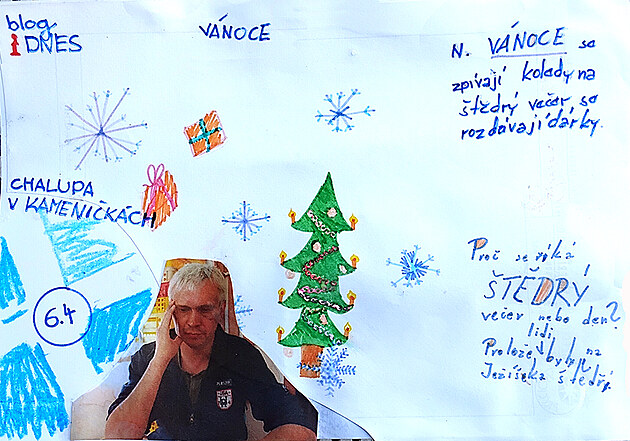 blog
iDNES
VÁNOCE
N. VÁNOCE se
zpívají koledy na
štědrý večer, se
rozdávají dárky.
CHALUPA
V KAMENIČKÁCH
6.4
Proč se říká
ŠTĚDRÝ
večer nebo den?
lidi
Protože byly na
Ježíška štědrý.